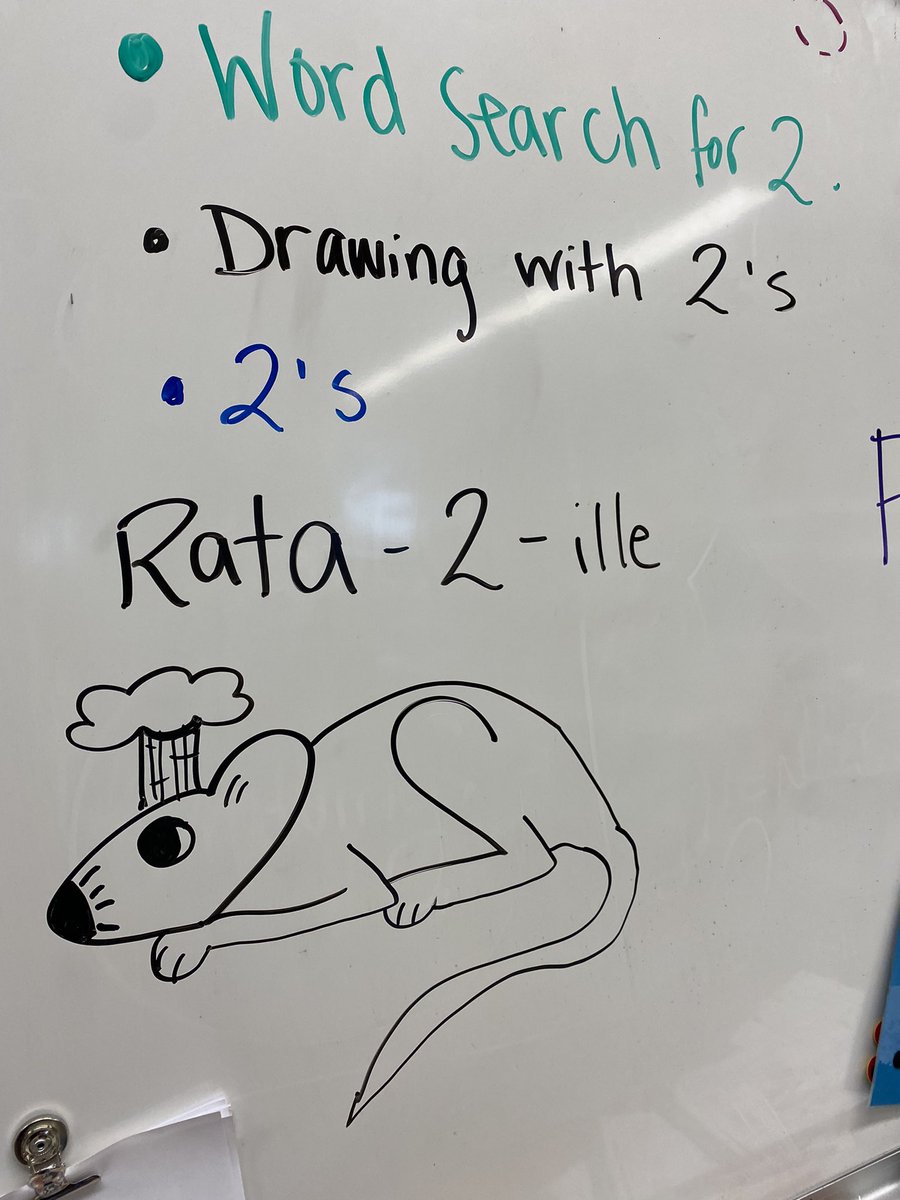 • Word Search for 2.
• Drawing with 2's
• 2's
Rata-2-ille